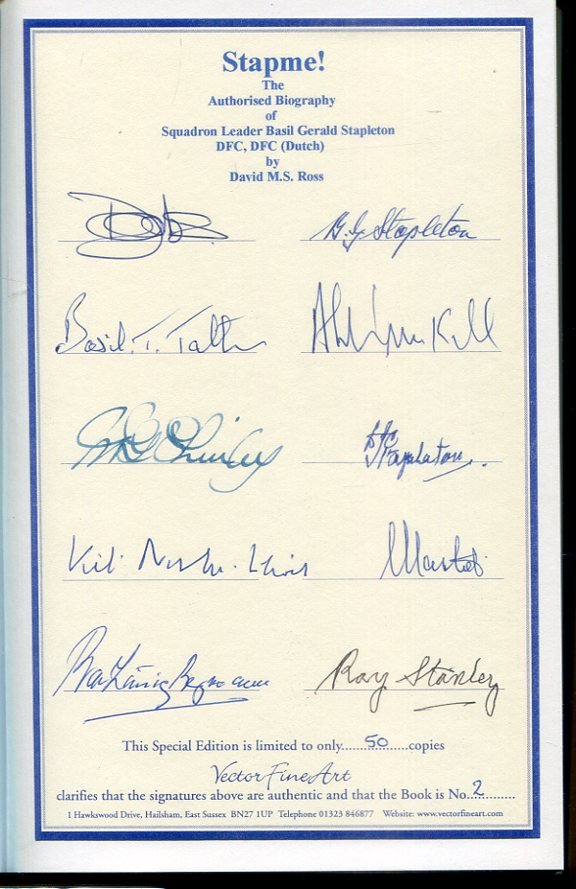 Stapme!
The
Authorised Biography
of
Squadron Leader Basil Gerald Stapleton
DFC, DFC (Dutch)
by
David M.S. Ross
B.G. Stapleton
Basil. T.
Stapleton.
Ray Stanley
This Special Edition is limited to only......50......copies
VectorFineArt
clarifies that the signatures above are authentic and that the Book is No..2............
1 Hawkswood Drive, Hailsham, East Sussex BN27 1UP Telephone 01323 846877 Website: www.vectorfineart.com